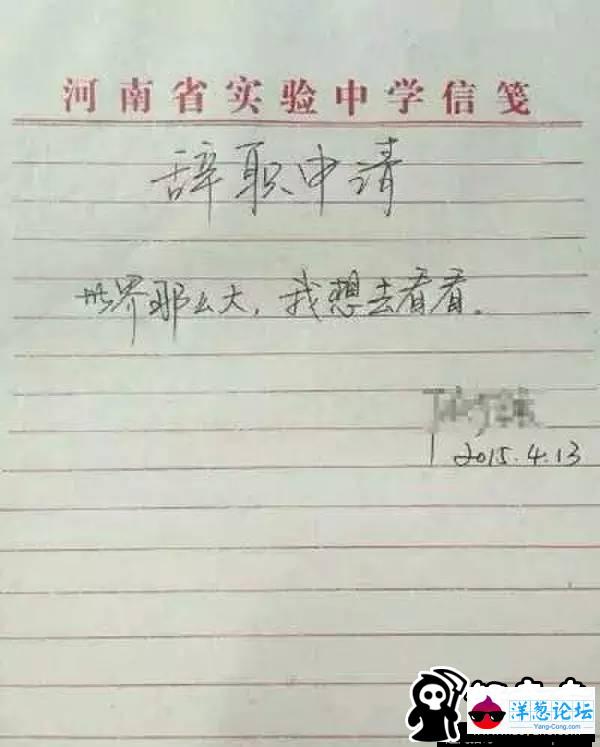 河南省实验中学信笺
辞职申请
世界那么大，我想去看看。
2015.4.13
洋葱论坛
Yang-Cong.com